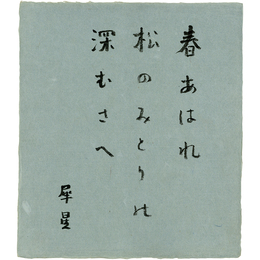 春あはれ
松のみとりの
深むさへ
犀星